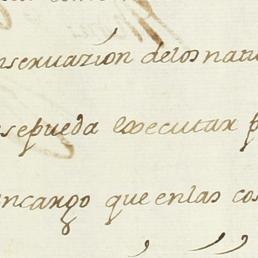 nseruazion delos natu
sepueda executar p
ncargo que enlas cos